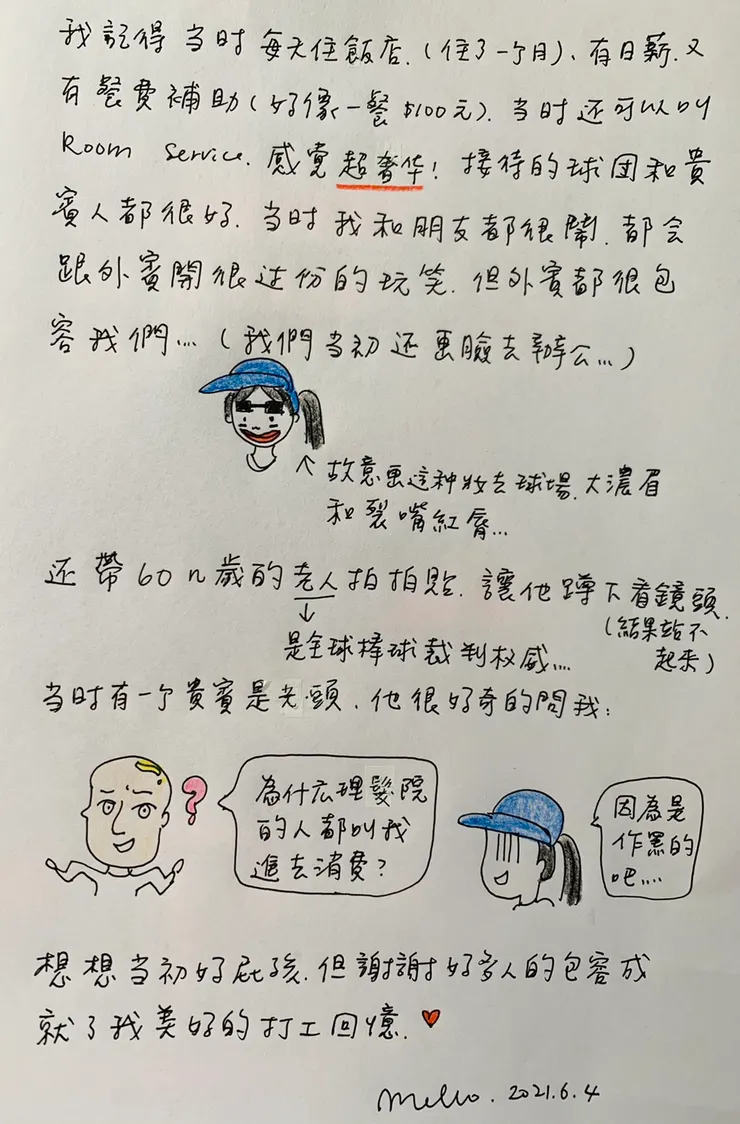 我記得当时每天住飯店.(住了一个月)、有日薪.又
有餐費補助(好像一餐$100元).当时还可以叫
Room Service.感覚超奢华!接待的球团和貴
賓人都很好.当时我和朋友都很鬧.都会
跟外賓開很过份的玩笑.但外賓都很包
容我們...(我們当初还画臉去辦公...)
↑故意画这种妝去球場.大濃眉
和裂嘴紅唇...
还帶60n歲的老人拍拍貼.讓他蹲下看鏡頭.
(結果站不
起來)
↓
是全球棒球裁判权威...
当时有一个貴賓是光頭.他很好奇的問我:
?
為什広理髮院
的人都叫我
進去消費?
因為是
作黑的
吧....
想想当初好屁孩.但謝謝好多人的包容成
就了我美好的打工回憶.♥
mello. 2021.6.4